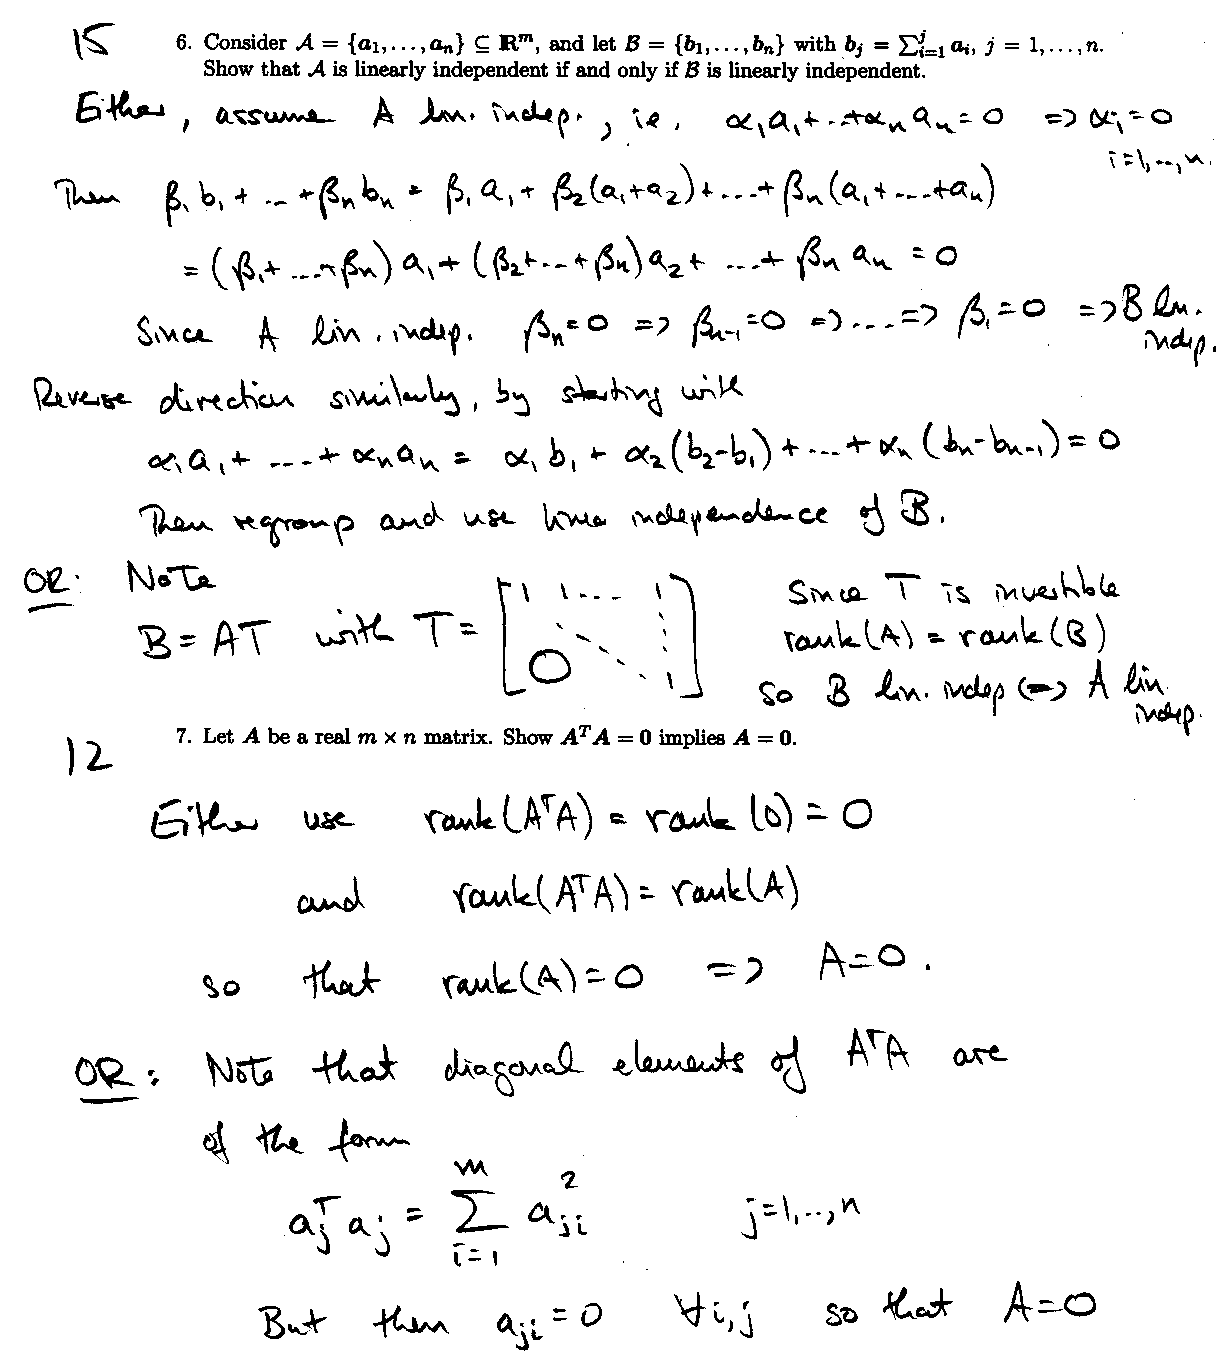 15 6. Consider 𝒜 = {a₁, . . . , aₙ} ⊆ ℝᵐ, and let ℬ = {b₁, . . . , bₙ} with bⱼ = ∑ʲᵢ₌₁ aᵢ, j = 1, . . . , n.
Show that 𝒜 is linearly independent if and only if ℬ is linearly independent.
Either, assume A lin. indep., ie. α₁a₁+...+αₙaₙ=0 => αᵢ=0
i=1,..,n.
Then β₁b₁+...+βₙbₙ = β₁a₁+β₂(a₁+a₂)+...+βₙ(a₁+...+aₙ)
=(β₁+...+βₙ)a₁+(β₂+...+βₙ)a₂+...+βₙaₙ=0
Since A lin. indep. βₙ=0 => βₙ₋₁=0 =>...=> β₁=0 => B lin.
indep.
Reverse direction similarly, by starting with
α₁a₁+...+αₙaₙ = α₁b₁+α₂(b₂-b₁)+...+αₙ(bₙ-bₙ₋₁)=0
Then regroup and use linear independence of B.
OR: Note
B=AT with T= [1 1... 1 0 1]
Since T is invertible
rank(A)=rank(B)
so B lin. indep <=> A lin.
indep.
12 7. Let A be a real m × n matrix. Show AᵀA = 0 implies A = 0.
Either use rank(AᵀA) = rank(0)=0
and rank(AᵀA)=rank(A)
so that rank(A)=0 => A=0.
OR: Note that diagonal elements of AᵀA are
of the form
aⱼᵀaⱼ = ∑ᵐᵢ₌₁ aⱼᵢ² j=1,..,n
But then aⱼᵢ=0 ∀i,j so that A=0